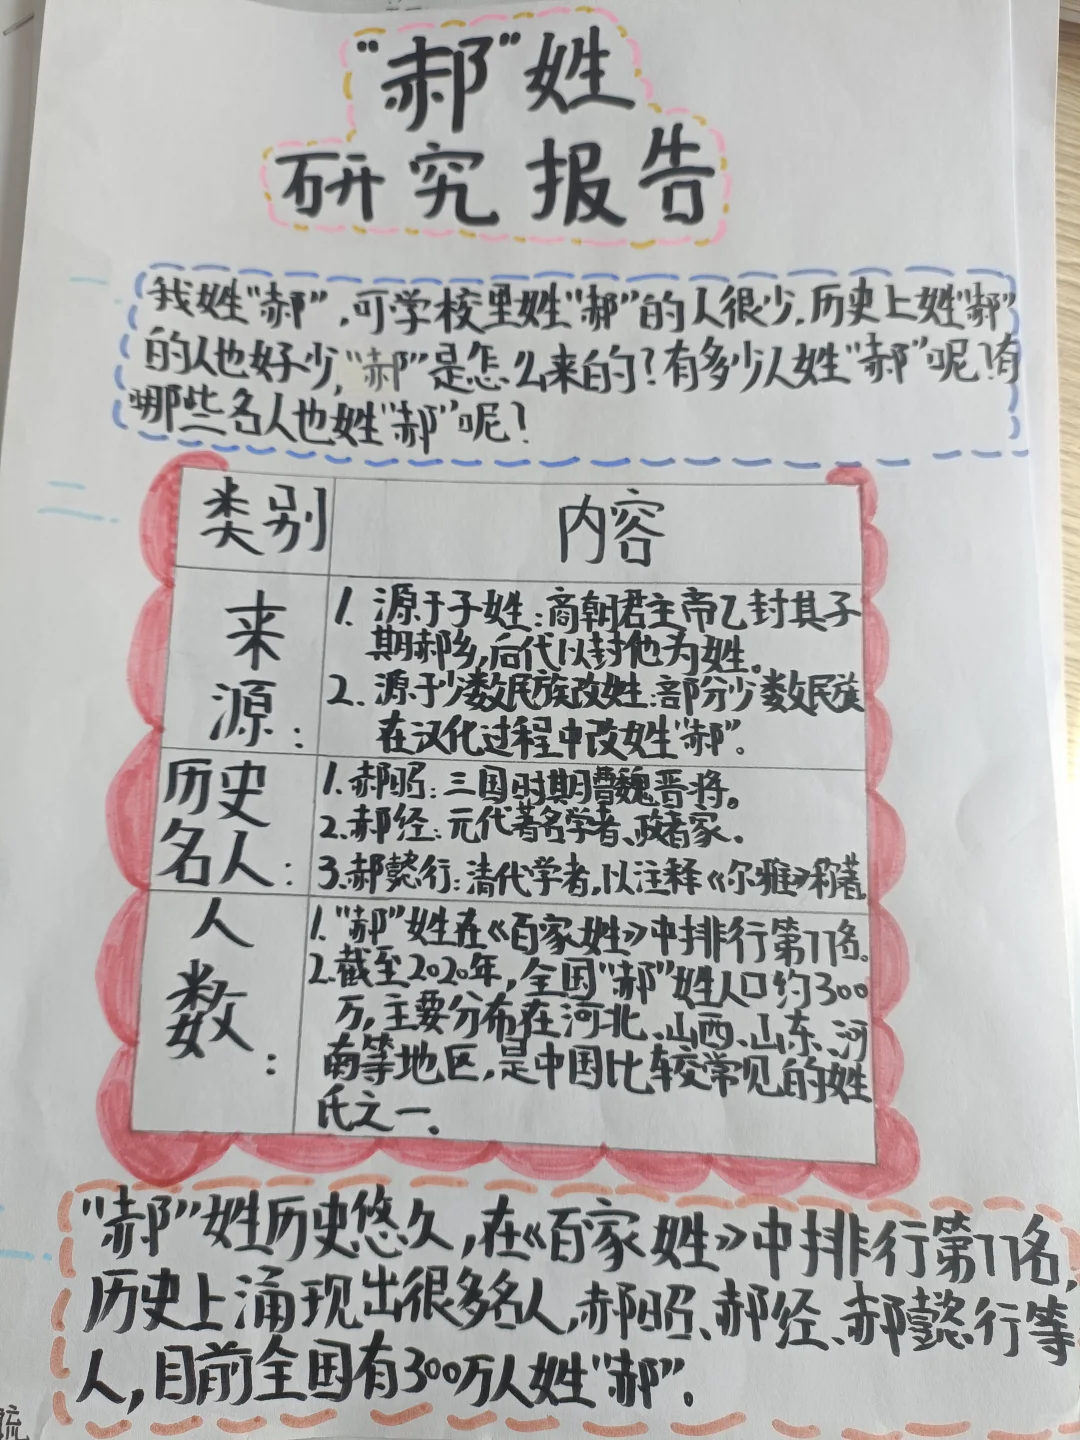 “郝”姓
研究报告
我姓“郝”,可学校里姓“郝”的人很少,历史上姓“郝”
的人也好少,“郝”是怎么来的?有多少人姓“郝”呢?有
哪些名人也姓“郝”呢?
类别
内容
来
源:
1. 源于子姓:商朝君主帝乙封其子
期郝乡,后代以封他为姓。
2. 源于少数民族改姓:部分少数民族
在汉化过程中改姓“郝”。
历史
名人:
1.郝昭:三国时期曹魏晋将。
2.郝经:元代著名学者、政者家.
3.郝懿行:清代学者,以注释《尔雅》称著
人
数:
1.“郝”姓在《百家姓》中排行第77名。
2.截至2020年,全国“郝”姓人口约300
万,主要分布在河北、山西、山东、河
南等地区,是中国比较常见的姓
氏之一.
“郝”姓历史悠久,在《百家姓》中排行第77名,
历史上涌现出很多名人,郝昭、郝经、郝懿行等
人,目前全国有300万人姓“郝”.